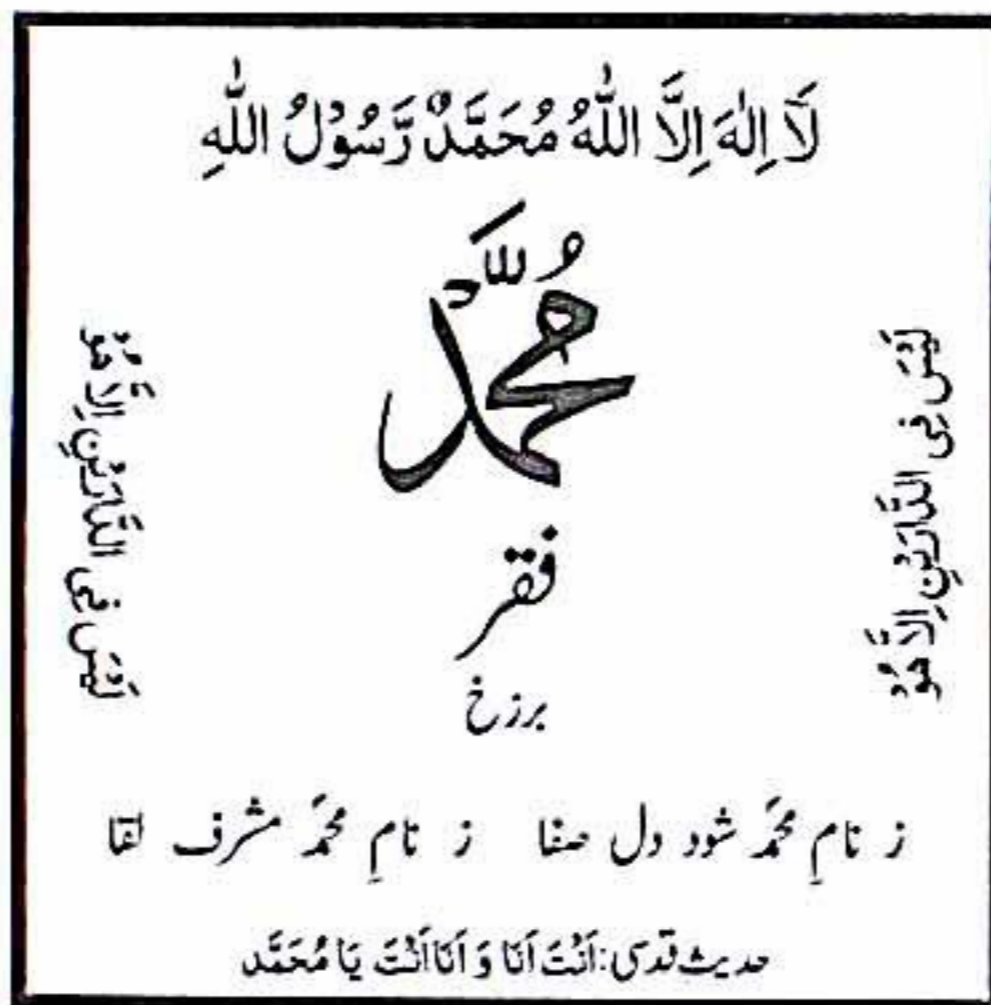 لَآ اِلٰهَ اِلَّا اللّٰهُ مُحَمَّدٌ رَّسُوْلُ اللّٰهِ
مُحَمَّد
فقر
برزخ
لَيْسَ فِي الدَّارَيْنِ اِلَّا هُوْ
لَيْسَ فِي الدَّارَيْنِ اِلَّا هُوْ
ز نامِ محمدؐ شود دل صفا ز نامِ محمدؐ مشرف لقا
حدیث قدسی: اَنْتَ اَنَا وَ اَنَا اَنْتَ يَا مُحَمَّد